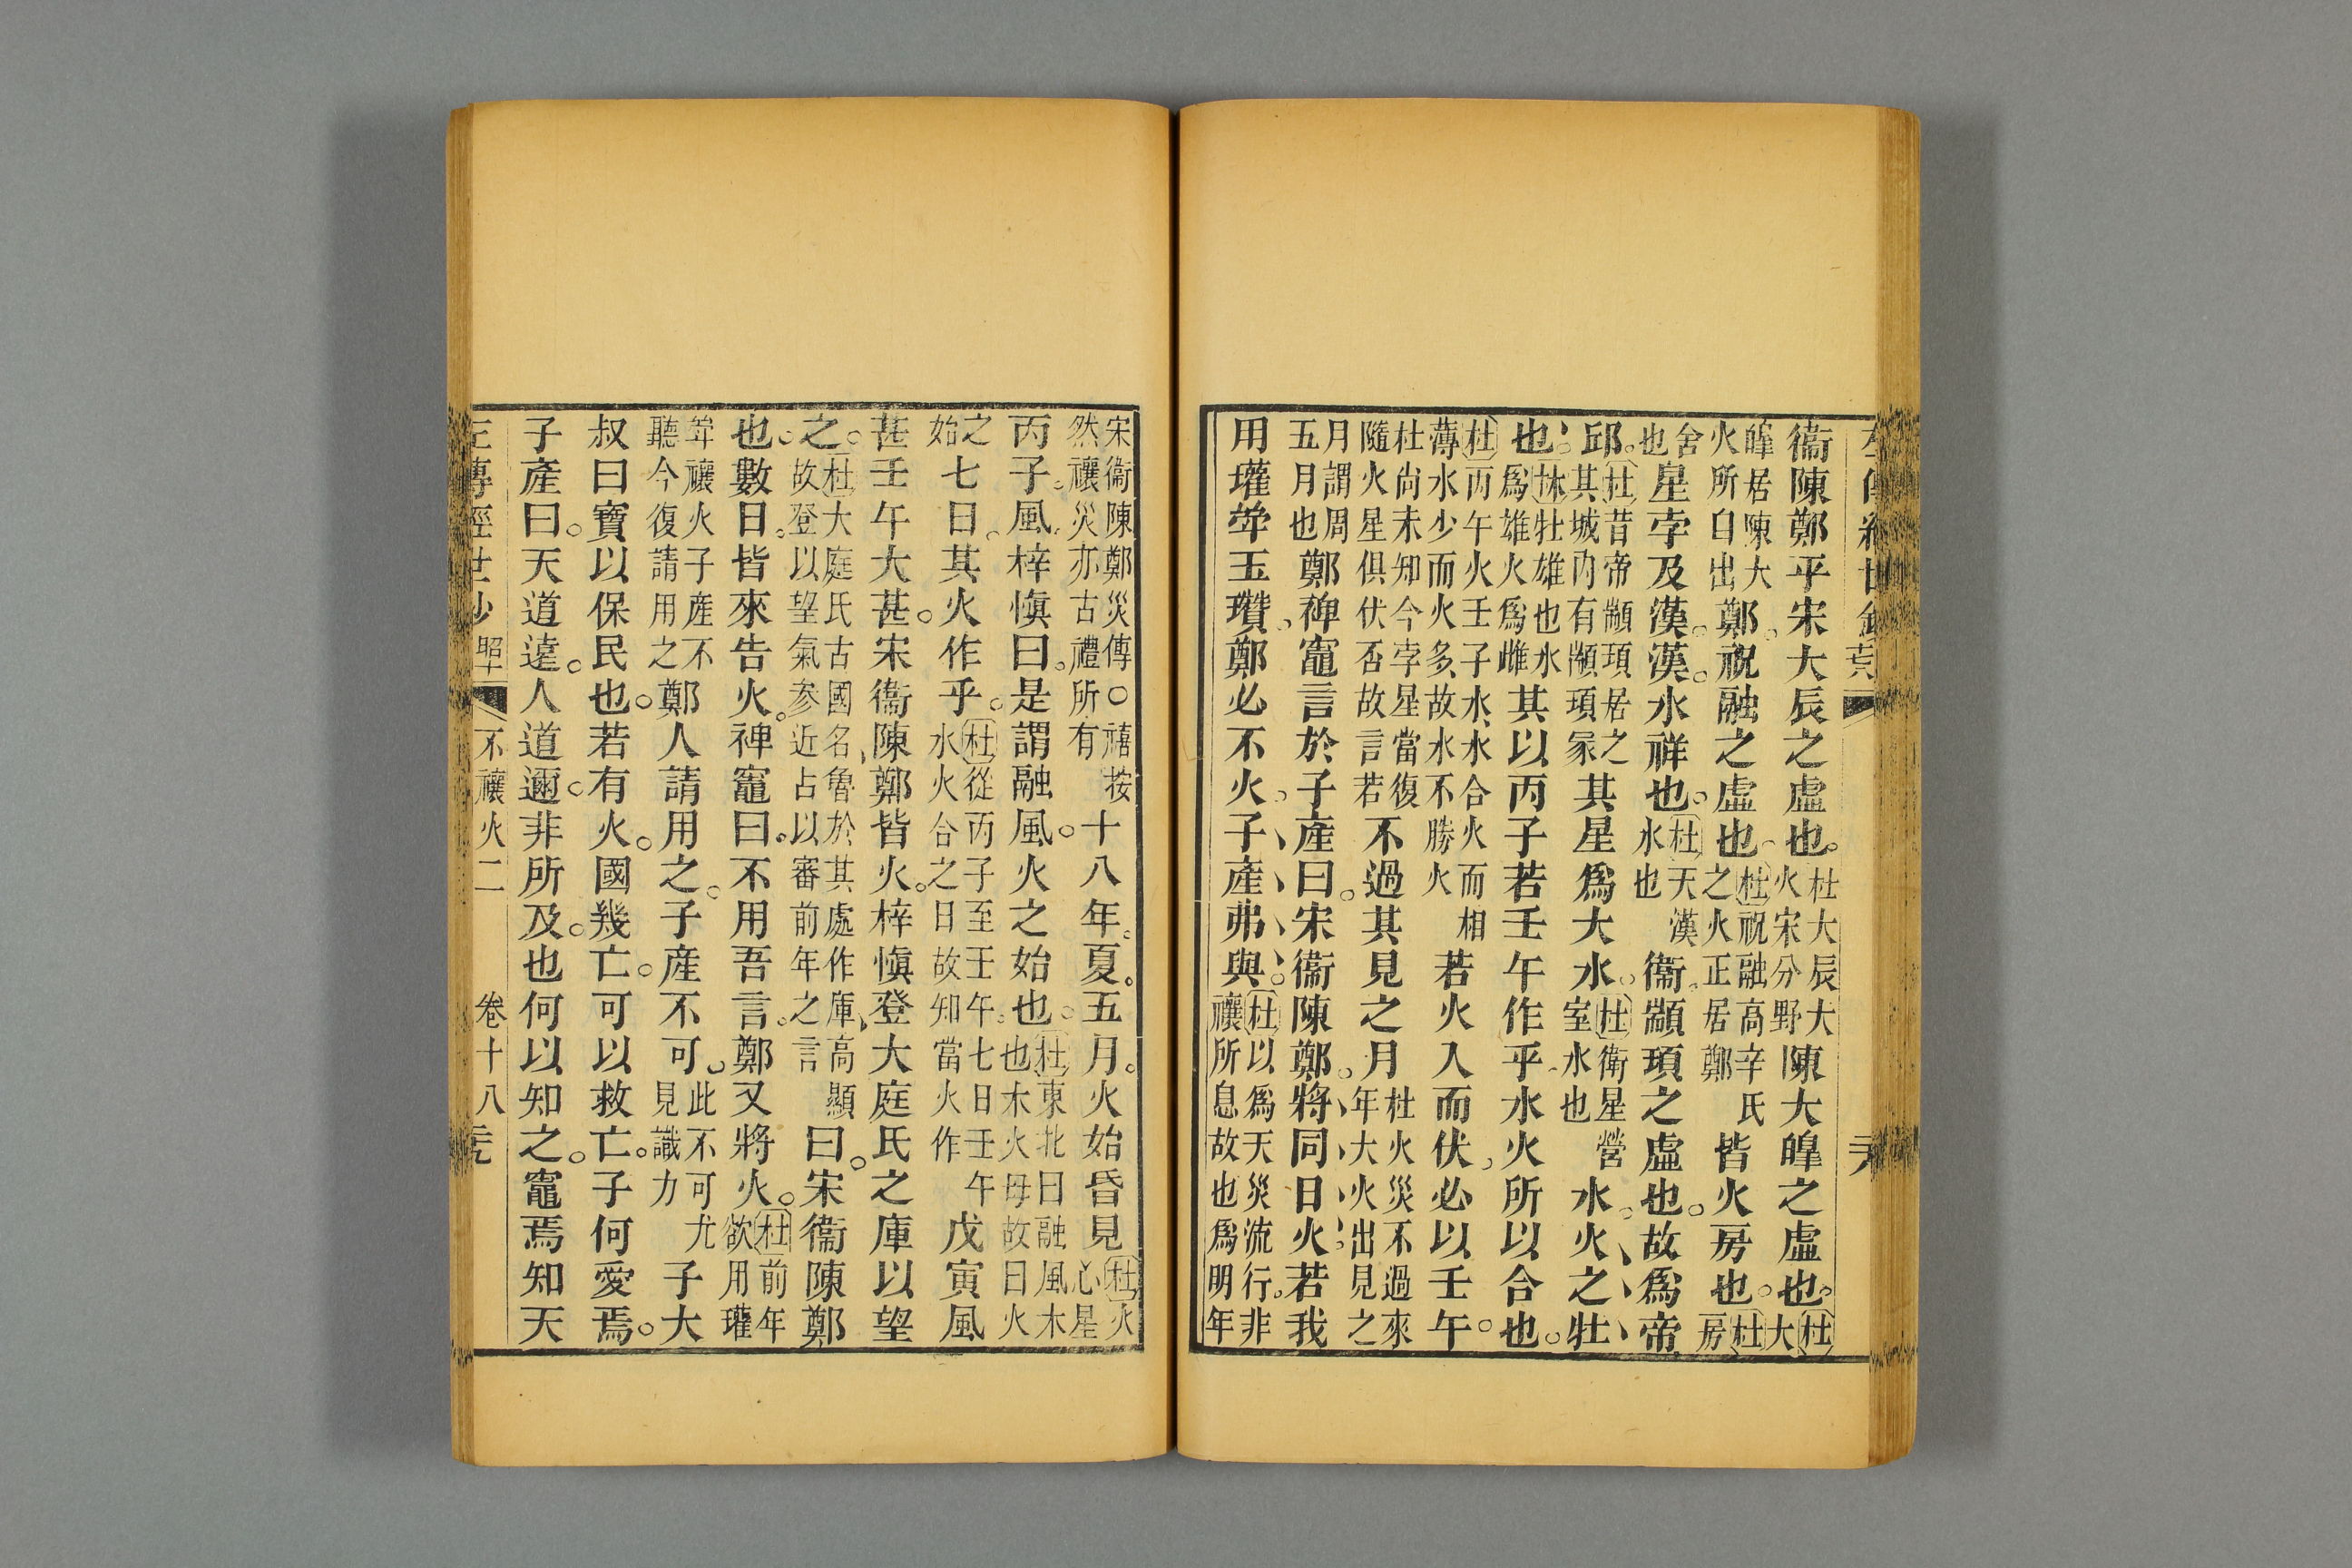 衞陳鄭乎宋大辰之虛也杜大辰大火宋分野陳大皥之虛也杜大
皥居陳大火所自出鄭祝融之虛也杜祝融高辛氏之火正居鄭皆火房也杜房
舍也星孛及漢漢水祥也杜天漢水也衞顓頊之虛也故爲帝
邱杜昔帝顓頊居之其城內有顓頊冢其星爲大水杜衛星營室水也水火之牡
也林牡雄也水爲雄火爲雌其以丙子若壬午作乎水火所以合也
杜丙午火壬子水水合火而相薄水少而火多故水不勝火若火入而伏必以壬午
杜尚未知今孛星當復隨火星俱伏否故言若不過其見之月杜火災不過來年大火出見之
月謂周五月也鄭禆竈言於子產曰宋衞陳鄭將同日火若我
用瓘斚玉瓚鄭必不火子產弗與杜以爲天災流行非禳所息故也爲明年
宋衞陳鄭災傳○禧按然禳災亦古禮所有十八年夏五月火始昏見杜火心星
丙子風梓愼曰是謂融風火之始也杜東北曰融風木也木火母故曰火
之始七日其火作乎杜從丙子至壬午七日壬午水火合之日故知當火作戊寅風
甚壬午大甚宋衞陳鄭皆火梓愼登大庭氏之庫以望
之杜大庭氏古國名魯於其處作庫高顯故登以望氣參近占以審前年之言曰宋衞陳鄭
也數日皆來告火禆竈曰不用吾言鄭又將火杜前年欲用瓘
斚禳火子產不聽今復請用之鄭人請用之子產不可此不可尤見識力子大
叔曰寶以保民也若有火國幾亡可以救亡子何愛焉
子產曰天道遠人道邇非所及也何以知之竈焉知天
左傳經世鈔 昭 不禳火二 卷十八